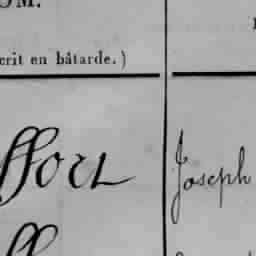 OM.
crit en bâtarde.)
ffort Joseph
ff